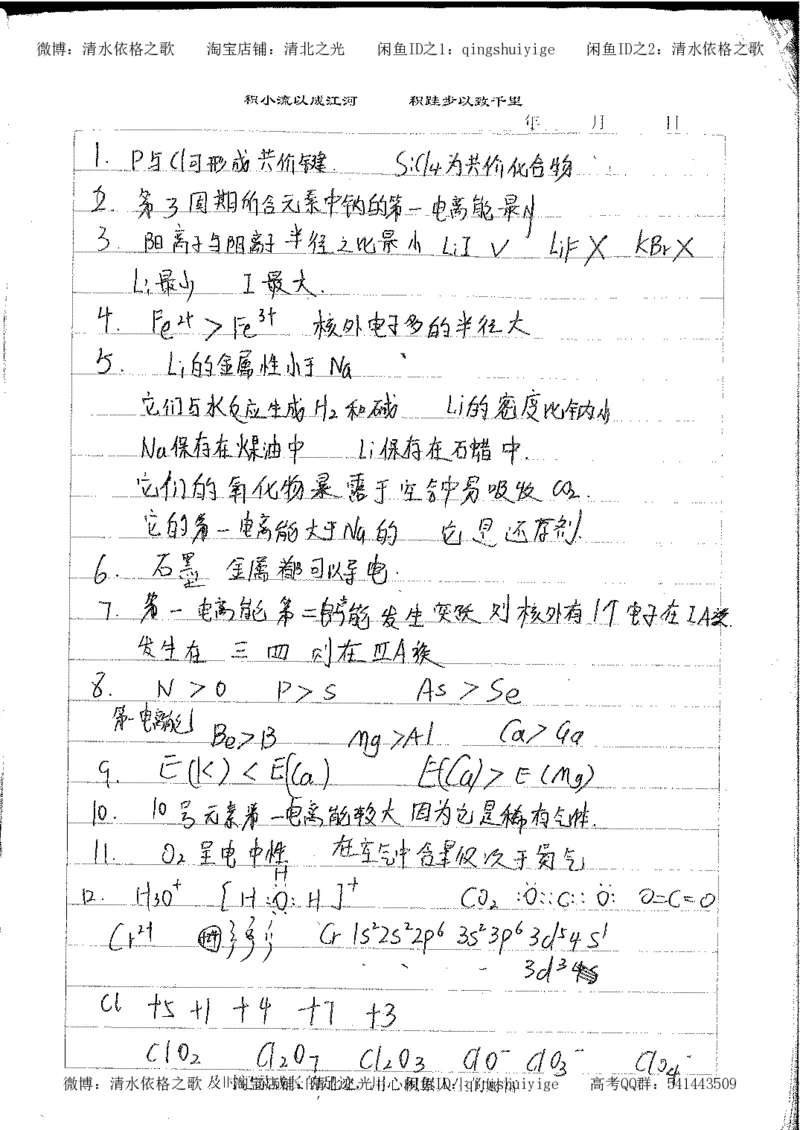 微博：清水依格之歌 淘宝店铺：清北之光 闲鱼ID之1：qingshuiyige 闲鱼ID之2：清水依格之歌
积小流以成江河 积跬步以致千里
年 月 日
1. P与Cl可形成共价键. SiCl4为共价化合物
2. 第3周期所含元素中钠的第一电离能最小
3. 阳离子与阴离子半径之比最小 LiI ✓ LiF X KBr X
Li最小 I最大.
4. Fe²⁺ > Fe³⁺ 核外电子多的半径大
5. Li的金属性小于Na
它们与水反应生成H2和碱 Li的密度比钠小
Na保存在煤油中 Li保存在石蜡中.
它们的氧化物暴露于空气中易吸收CO2.
它的第一电离能大于Na的 它是还原剂.
6. 石墨 金属都可以导电.
7. 第一电离能第二电离能发生突跃则核外有1个电子在IA族
发生在三四则在ⅢA族
8. N > O P > S As > Se
第一电离能 Be > B Mg > Al Ca > Ga
9. E(K) < E(Ca) E(Ca) > E(Mg)
10. 10号元素第一电离能较大因为它是稀有气体.
11. O2呈电中性 在空气中含量仅次于氮气
12. H3O⁺ [H:O:H]⁺ CO2 :O::C::O: O=C=O
H
Cr²⁺ Cr 1s²2s²2p⁶ 3s²3p⁶3d⁵4s¹
3d³
Cl +5 +1 +4 +7 +3
ClO2 Cl2O7 Cl2O3 ClO⁻ ClO3⁻ ClO4⁻
微博：清水依格之歌 淘宝店铺：清北之光 闲鱼ID：qingshuiyige 高考QQ群：541443509